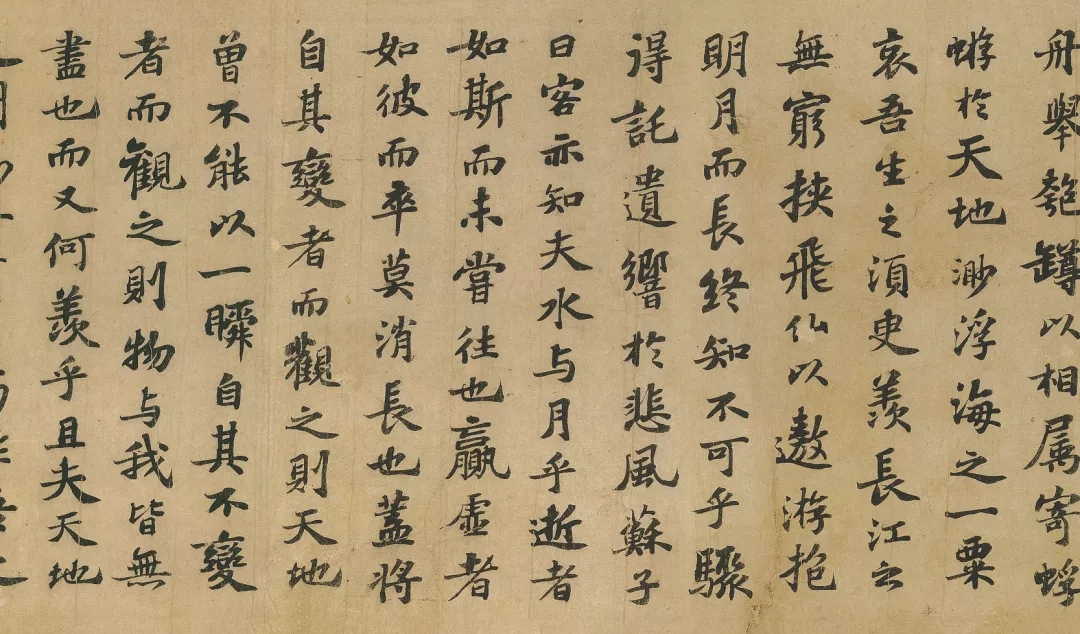 舟舉匏罇以相属寄蜉
蝣於天地渺浮海之一粟
哀吾生之須臾羨長江之
無窮挾飛仙以遨游抱
明月而長終知不可乎驟
得託遺響於悲風蘇子
曰客亦知夫水与月乎逝者
如斯而未嘗往也贏虛者
如彼而卒莫消長也蓋將
自其變者而觀之則天地
曾不能以一瞬自其不變
者而觀之則物与我皆無
盡也而又何羨乎且夫天地